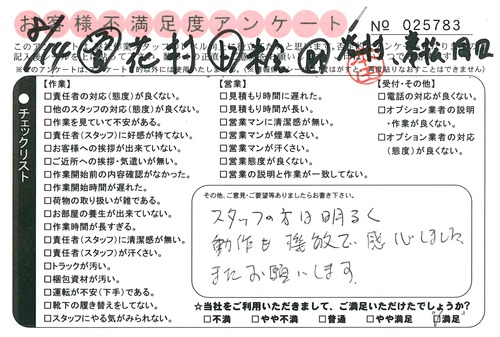 お客様不満足度アンケート
No 025783
チェックリスト
【作業】
□責任者の対応(態度)が良くない。
□他のスタッフの対応(態度)が良くない。
□作業を見ていて不安がある。
□責任者(スタッフ)に好感が持てない。
□お客様への挨拶が出来ていない。
□ご近所への挨拶・気遣いが無い。
□作業開始前の内容確認がなかった。
□作業開始時間が遅れた。
□荷物の取り扱いが雑である。
□お部屋の養生が出来ていない。
□作業時間が長すぎる。
□責任者(スタッフ)に清潔感が無い。
□責任者(スタッフ)が汗くさい。
□トラックが汚い。
□梱包資材が汚い。
□運転が不安(下手)である。
□靴下の履き替えをしてない。
□スタッフにやる気がみられない。
【営業】
□見積もり時間に遅れた。
□見積もり時間が長い。
□営業マンに清潔感が無い。
□営業マンが煙草くさい。
□営業マンが汗くさい。
□営業態度が良くない。
□営業の説明と作業が一致してない。
【受付・その他】
□電話の対応が良くない。
□オプション業者の説明
・作業が良くない。
□オプション業者の対応
(態度)が良くない。
その他、ご意見・ご要望等ありましたらお書き下さい。
スタッフの方は明るく
動作も機敏で感心しました
またお願いします。
☆当社をご利用いただきまして、ご満足いただけたでしょうか?
□不満 □やや不満 □普通 □やや満足 □満足